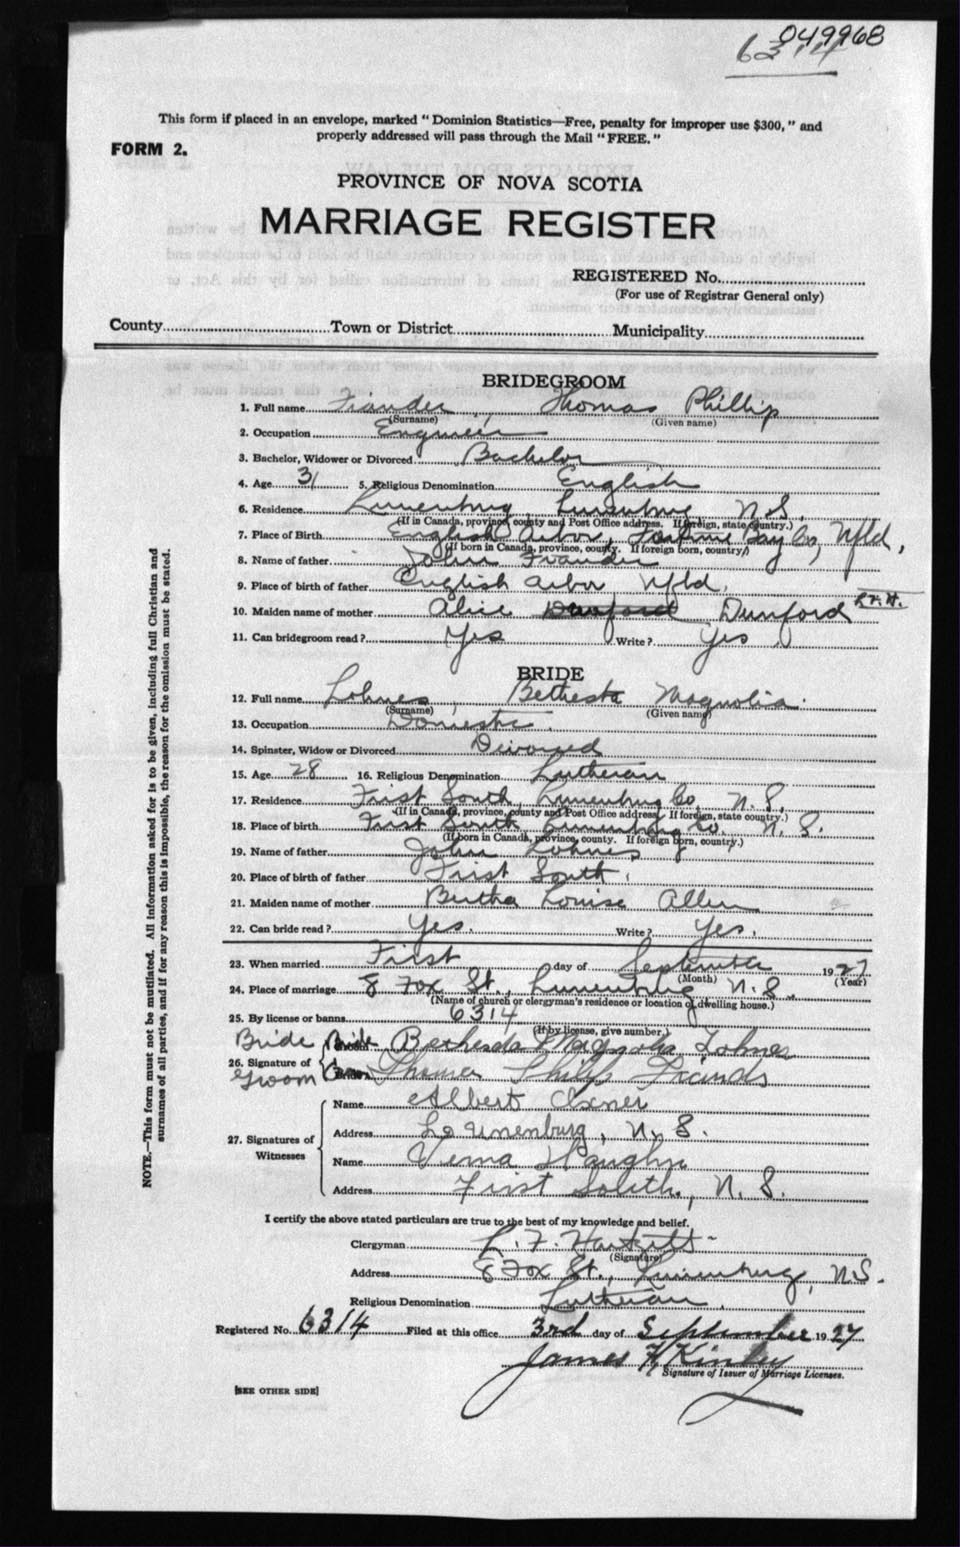 049968
6314
This form if placed in an envelope, marked "Dominion Statistics—Free, penalty for improper use $300," and
properly addressed will pass through the Mail "FREE."
FORM 2.
PROVINCE OF NOVA SCOTIA
MARRIAGE REGISTER
REGISTERED No.
(For use of Registrar General only)
County Town or District Municipality
NOTE.—This form must not be mutilated. All information asked for is to be given, including full Christian and
surnames of all parties, and if for any reason this is impossible, the reason for the omission must be stated.
BRIDEGROOM
1. Full name Thomas Phillip
(Surname) (Given name)
2. Occupation Engineer
3. Bachelor, Widower or Divorced Bachelor
4. Age 31 5. Religious Denomination English
6. Residence Lunenburg, Lunenburg N.S.
(If in Canada, province, county and Post Office address. If foreign, state country.)
7. Place of Birth English Arbor, Fortune Bay Co, Nfld,
(If born in Canada, province, county. If foreign born, country)
8. Name of father John
9. Place of birth of father English Arbor Nfld,
10. Maiden name of mother Alice Dunford
11. Can bridegroom read? Yes Write? Yes
BRIDE
12. Full name Lohnes, Bethesda Magnolia.
(Surname) (Given name)
13. Occupation Domestic.
14. Spinster, Widow or Divorced Divorced
15. Age 28 16. Religious Denomination Lutheran
17. Residence First South, Lunenburg Co, N. S.
(If in Canada, province, county and Post Office address. If foreign, state country.)
18. Place of birth First South Lunenburg Co. N. S.
(If born in Canada, province, county. If foreign born, country.)
19. Name of father John Lohnes
20. Place of birth of father First South.
21. Maiden name of mother Bertha Louise Allen
22. Can bride read? Yes. Write? Yes.
23. When married First day of September 1927
(Month) (Year)
24. Place of marriage 8 Fox St., Lunenburg N. S.
(Name of church or clergyman's residence or location of dwelling house.)
25. By license or banns 6314
(If by license, give number.)
Bride Bride Bethesda Magnolia Lohnes
26. Signature of
Groom Thomas Philip
27. Signatures of Witnesses
Name Albert Oxner
Address Lounenburg, N. S.
Name Verna Vaughn
Address First South, N. S.
I certify the above stated particulars are true to the best of my knowledge and belief.
Clergyman L. F.
(Signature)
Address 8 Fox St., Lunenburg, N.S.
Religious Denomination Lutheran.
Registered No. 6314 Filed at this office 3rd day of September 1927
James H Kinley
Signature of Issuer of Marriage Licenses.
[SEE OTHER SIDE]